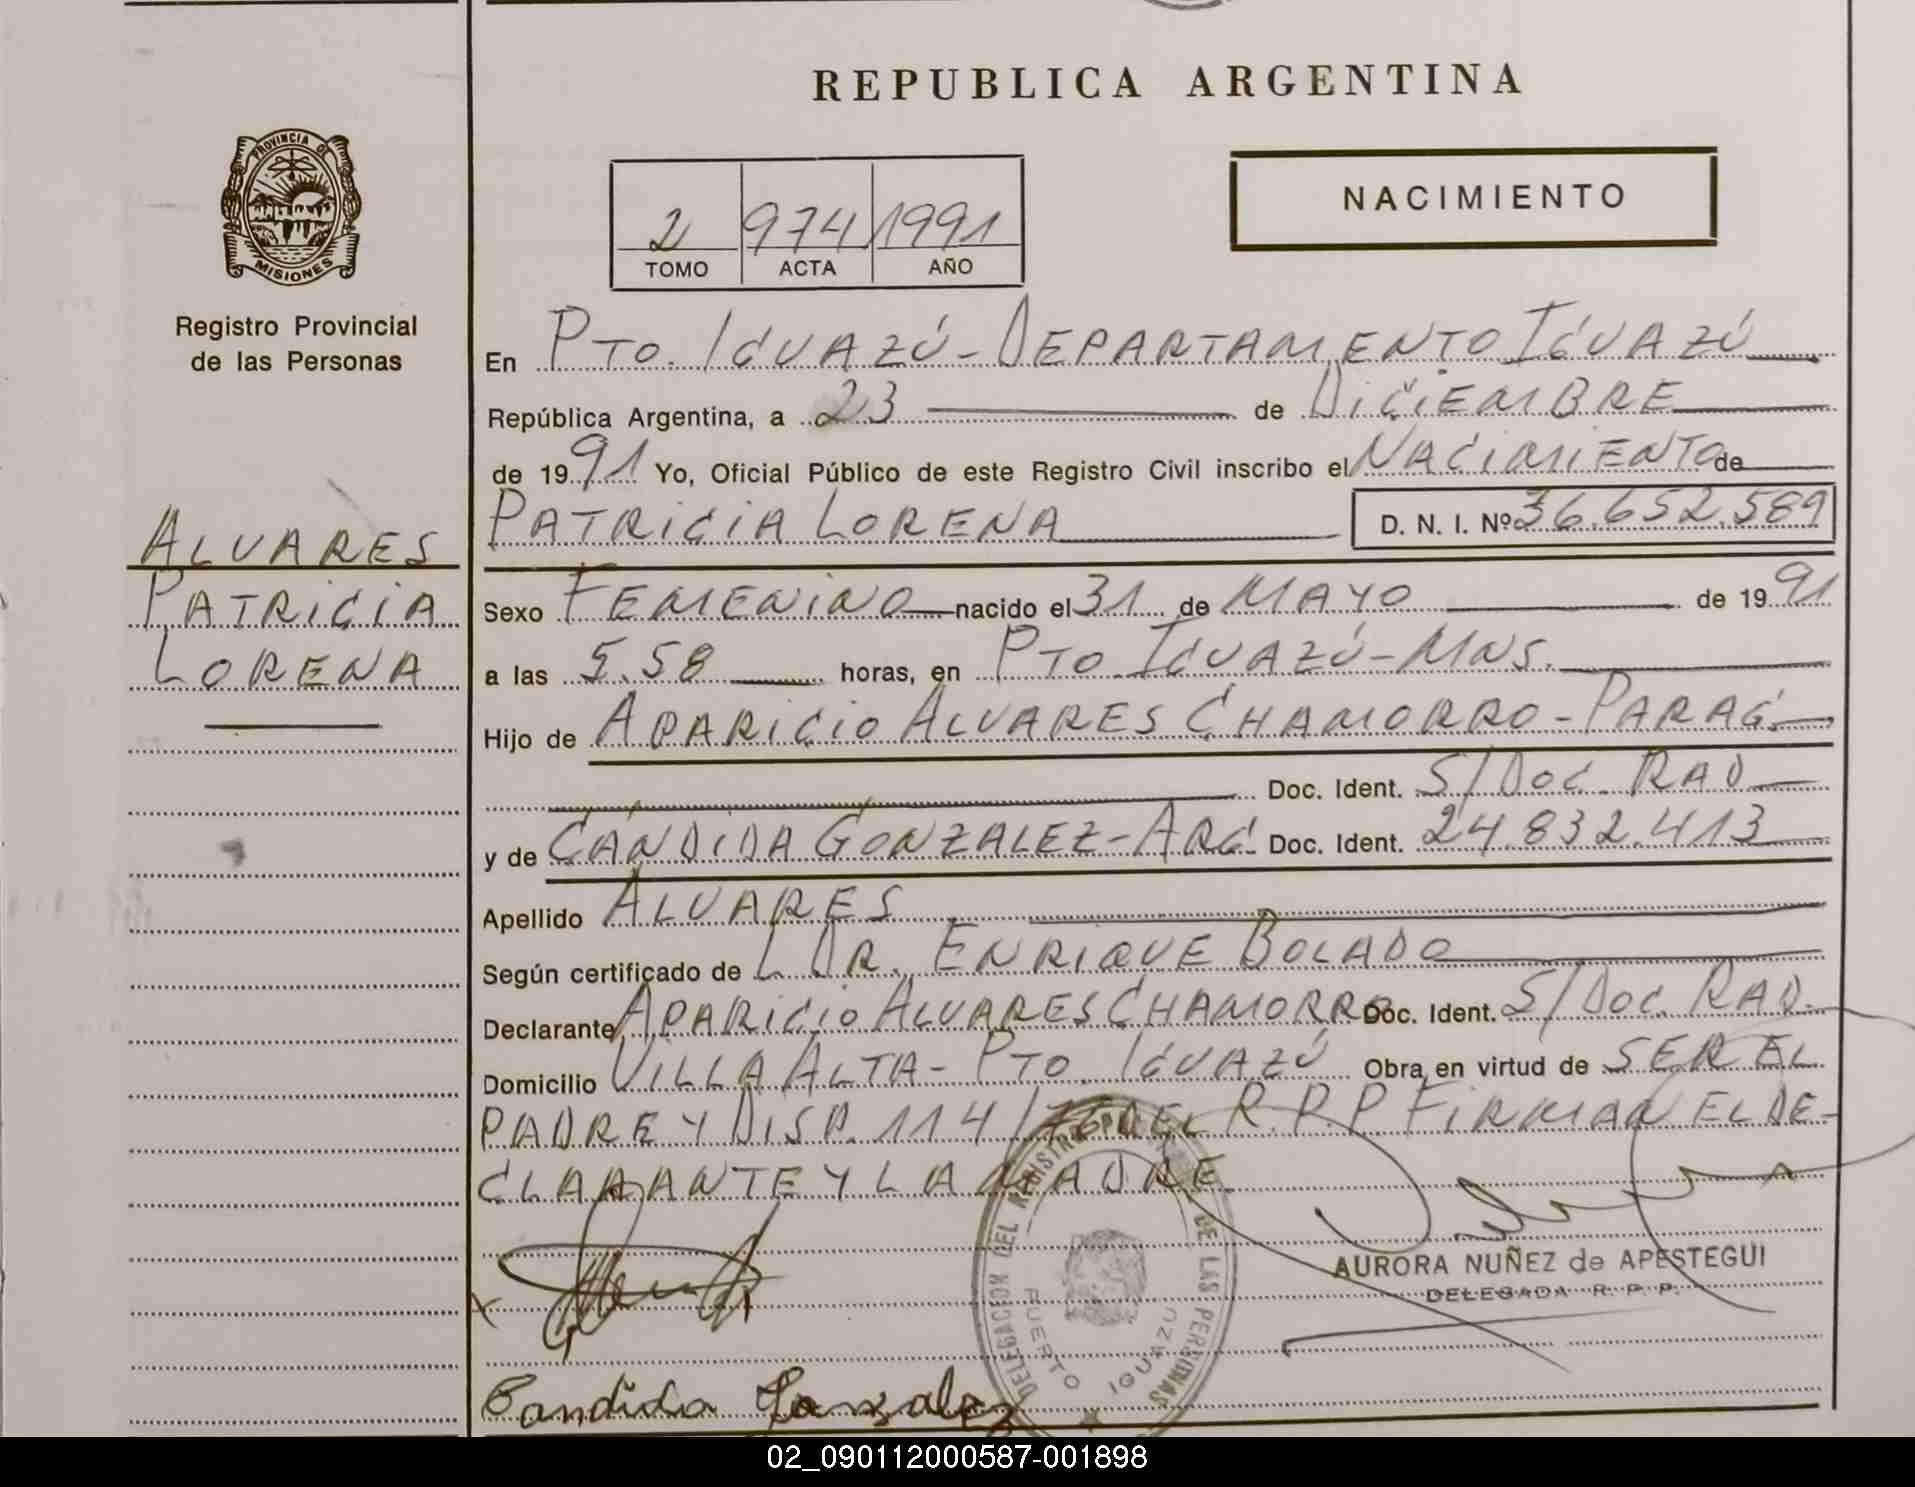 REPUBLICA ARGENTINA
PROVINCIA DE
MISIONES
Registro Provincial
de las Personas
NACIMIENTO
2 974 1991
TOMO ACTA AÑO
En PTO. IGUAZÚ - DEPARTAMENTO IGUAZÚ
República Argentina, a 23 de DICIEMBRE
de 1991 Yo, Oficial Público de este Registro Civil inscribo el NACIMIENTO de
PATRICIA LORENA D. N. I. Nº 36.652.589
ALVARES
PATRICIA
LORENA
Sexo FEMENINO nacido el 31 de MAYO de 1991
a las 5.58 horas, en PTO. IGUAZÚ - MNS.
Hijo de APARICIO ALVARES CHAMORRO - PARAG.
Doc. Ident. S/DOC. RAD
y de CÁNDIDA GONZALEZ - ARG. Doc. Ident. 24.832.413
Apellido ALVARES
Según certificado de L DR. ENRIQUE BOLADO
Declarante APARICIO ALVARES CHAMORRO Doc. Ident. S/DOC. RAD.
Domicilio VILLA ALTA - PTO. IGUAZÚ Obra en virtud de SER EL
PADRE Y DISP. 114/76 DEL R.P.P FIRMAN EL DE-
CLARANTE Y LA MADRE
DELEGACION DEL REGISTRO DE LAS PERSONAS
PUERTO IGUAZU
AURORA NUÑEZ de APESTEGUI
DELEGADA R. P. P.
Candida Gonzalez
02_090112000587-001898